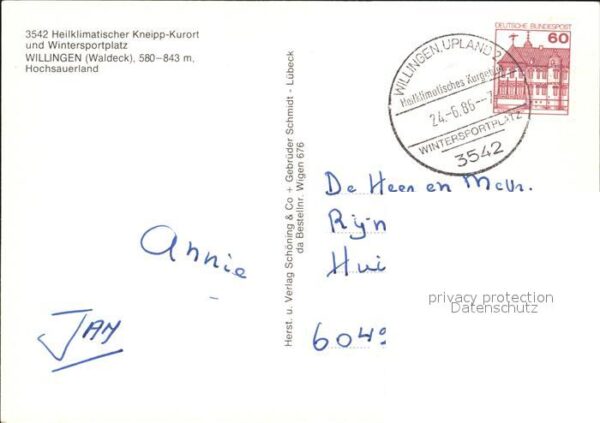 3542 Heilklimatischer Kneipp-Kurort
und Wintersportplatz
WILLINGEN (Waldeck), 580–843 m,
Hochsauerland
Annie
JAN
Herst. u. Verlag Schöning & Co + Gebrüder Schmidt - Lübeck
da Bestellnr. Wigen 676
DEUTSCHE BUNDESPOST
60
WILLINGEN, UPLAND
Heilklimatisches Kurgebiet
24.-6.86.--7
WINTERSPORTPLATZ
3542
De Heer en Mevr.
Rijn
Hui
604
privacy protection
Datenschutz